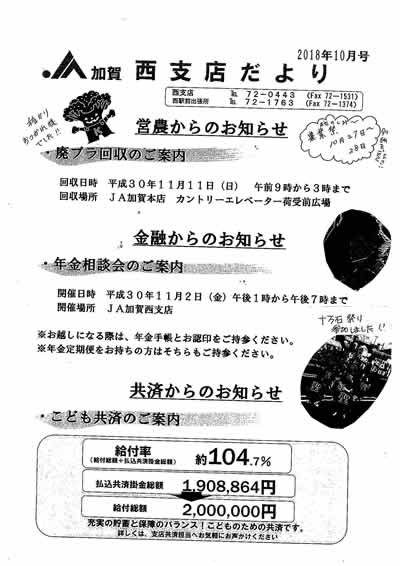 2018年10月号
JA加賀 西支店だより
西支店 ℡ 72-0443 (Fax 72-1531)
西駅前出張所 ℡ 72-1763 (Fax 72-1374)
営農からのお知らせ
農業祭
10月27日〜
28日
・廃プラ回収のご案内
回収日時 平成30年11月11日(日) 午前9時から3時まで
回収場所 JA加賀本店 カントリーエレベーター荷受前広場
金融からのお知らせ
・年金相談会のご案内
開催日時 平成30年11月2日(金)午後1時から午後7時まで
開催場所 JA加賀西支店
※お越しになる際は、年金手帳とお認印をご持参ください。
※年金定期便をお持ちの方はそちらもご持参ください。
十万石祭り
参加しました!!
共済からのお知らせ
・こども共済のご案内
給付率
(給付総額÷払込共済掛金総額)
約104.7%
払込共済掛金総額 1,908,864円
給付総額 2,000,000円
充実の貯蓄と保障のバランス!こどものための共済です。
詳しくは、支店共済担当へお気軽にお声がけください